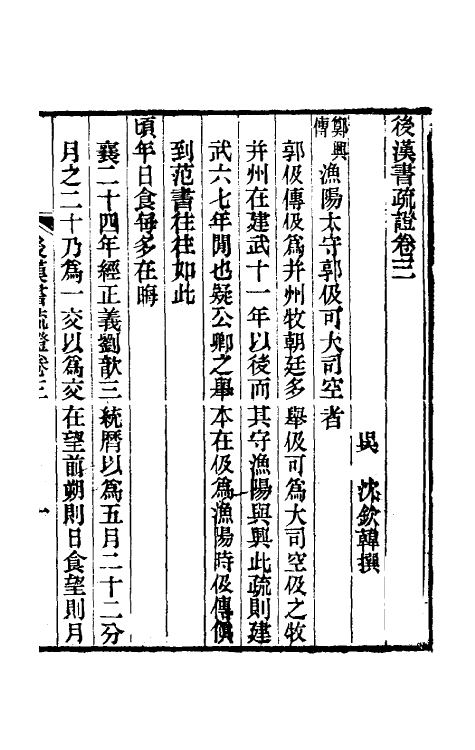 後漢書疏證卷三
吳　沈欽韓撰
鄭興傳　漁陽太守郭伋可大司空者
郭伋傳伋爲幷州牧朝廷多舉伋可爲大司空伋之牧
幷州在建武十一年以後而其守漁陽與興此疏則建
武六七年閒也疑公卿之舉本在伋爲漁陽時伋傳傎
到范書往往如此
頃年日食每多在晦
襄二十四年經正義劉歆三統厤以爲五月二十二分
月之二十乃爲一交以爲交在望前朔則日食望則月
後漢書疏證卷三　一